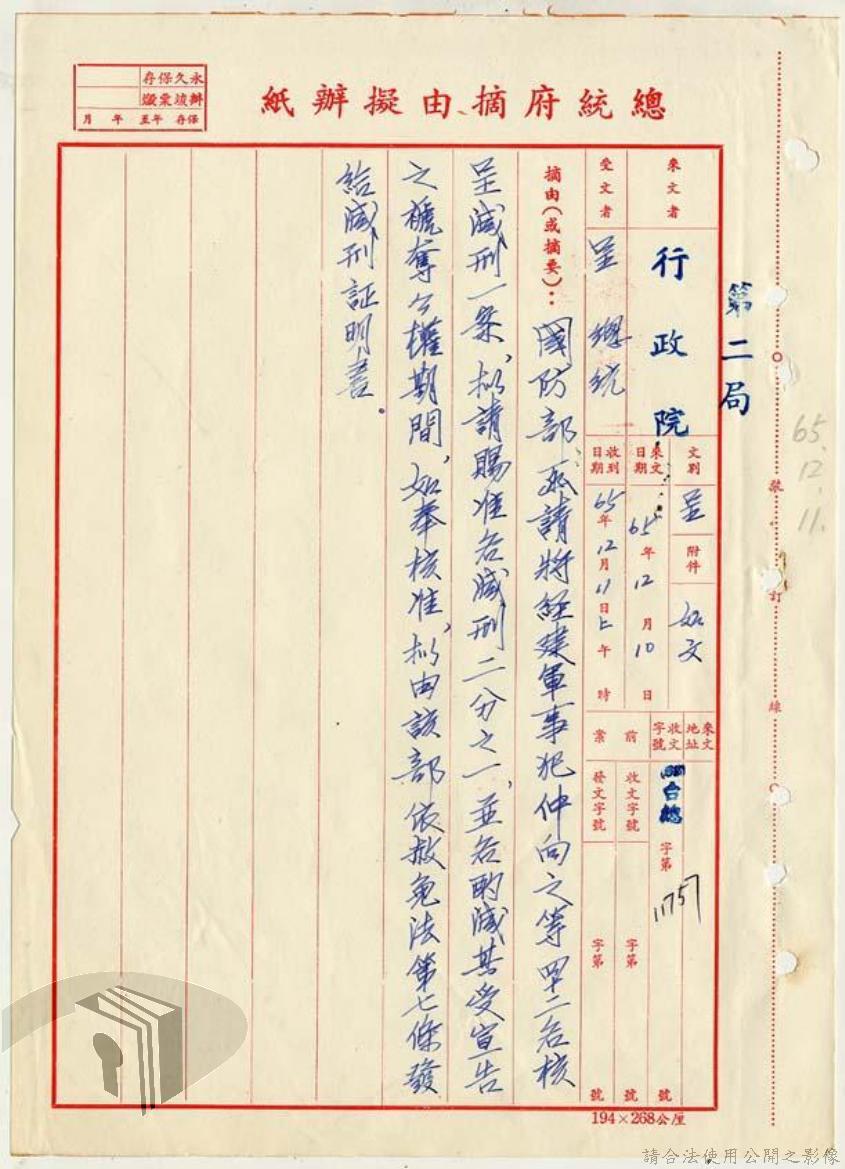 總統府摘由擬辦紙
永久保存
辦竣彙繳
保存 年至 年 月
第二局
65.12.11.
來文者 行政院
受文者 呈 總統
文別 呈
附件 如文
來文日期 65年12月10日
收到日期 65年12月11日上午 時
來文地址
收文字號 台總字第11757號
前案
收文字號 字第 號
發文字號 字第 號
摘由(或摘要):
國防部函請將經建軍事犯仲向之等四二名核
呈減刑一案、擬請賜准各減刑二分之一、並各酌減其受宣告
之褫奪公權期間、如奉核准、擬由該部依赦免法第七條發
給減刑証明書。
裝
訂
線
194×268公厘
請合法使用公開之影像